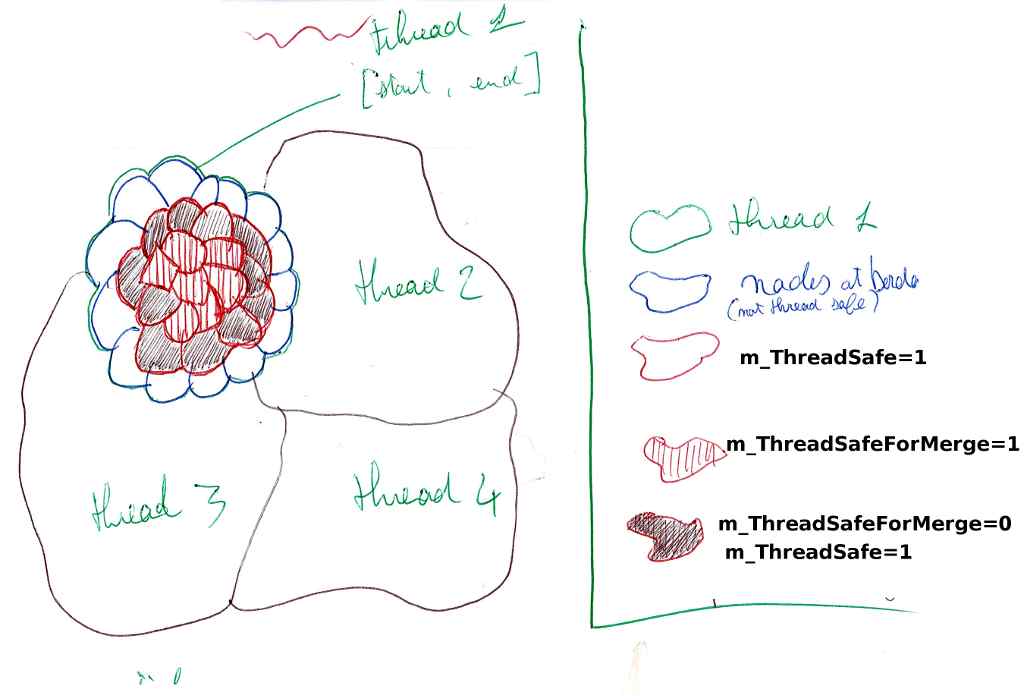 thread 1
[start, end]
thread 2
thread 3
thread 4
thread 1
nodes at borde
(not thread safe)
m_ThreadSafe=1
m_ThreadSafeForMerge=1
m_ThreadSafeForMerge=0
m_ThreadSafe=1